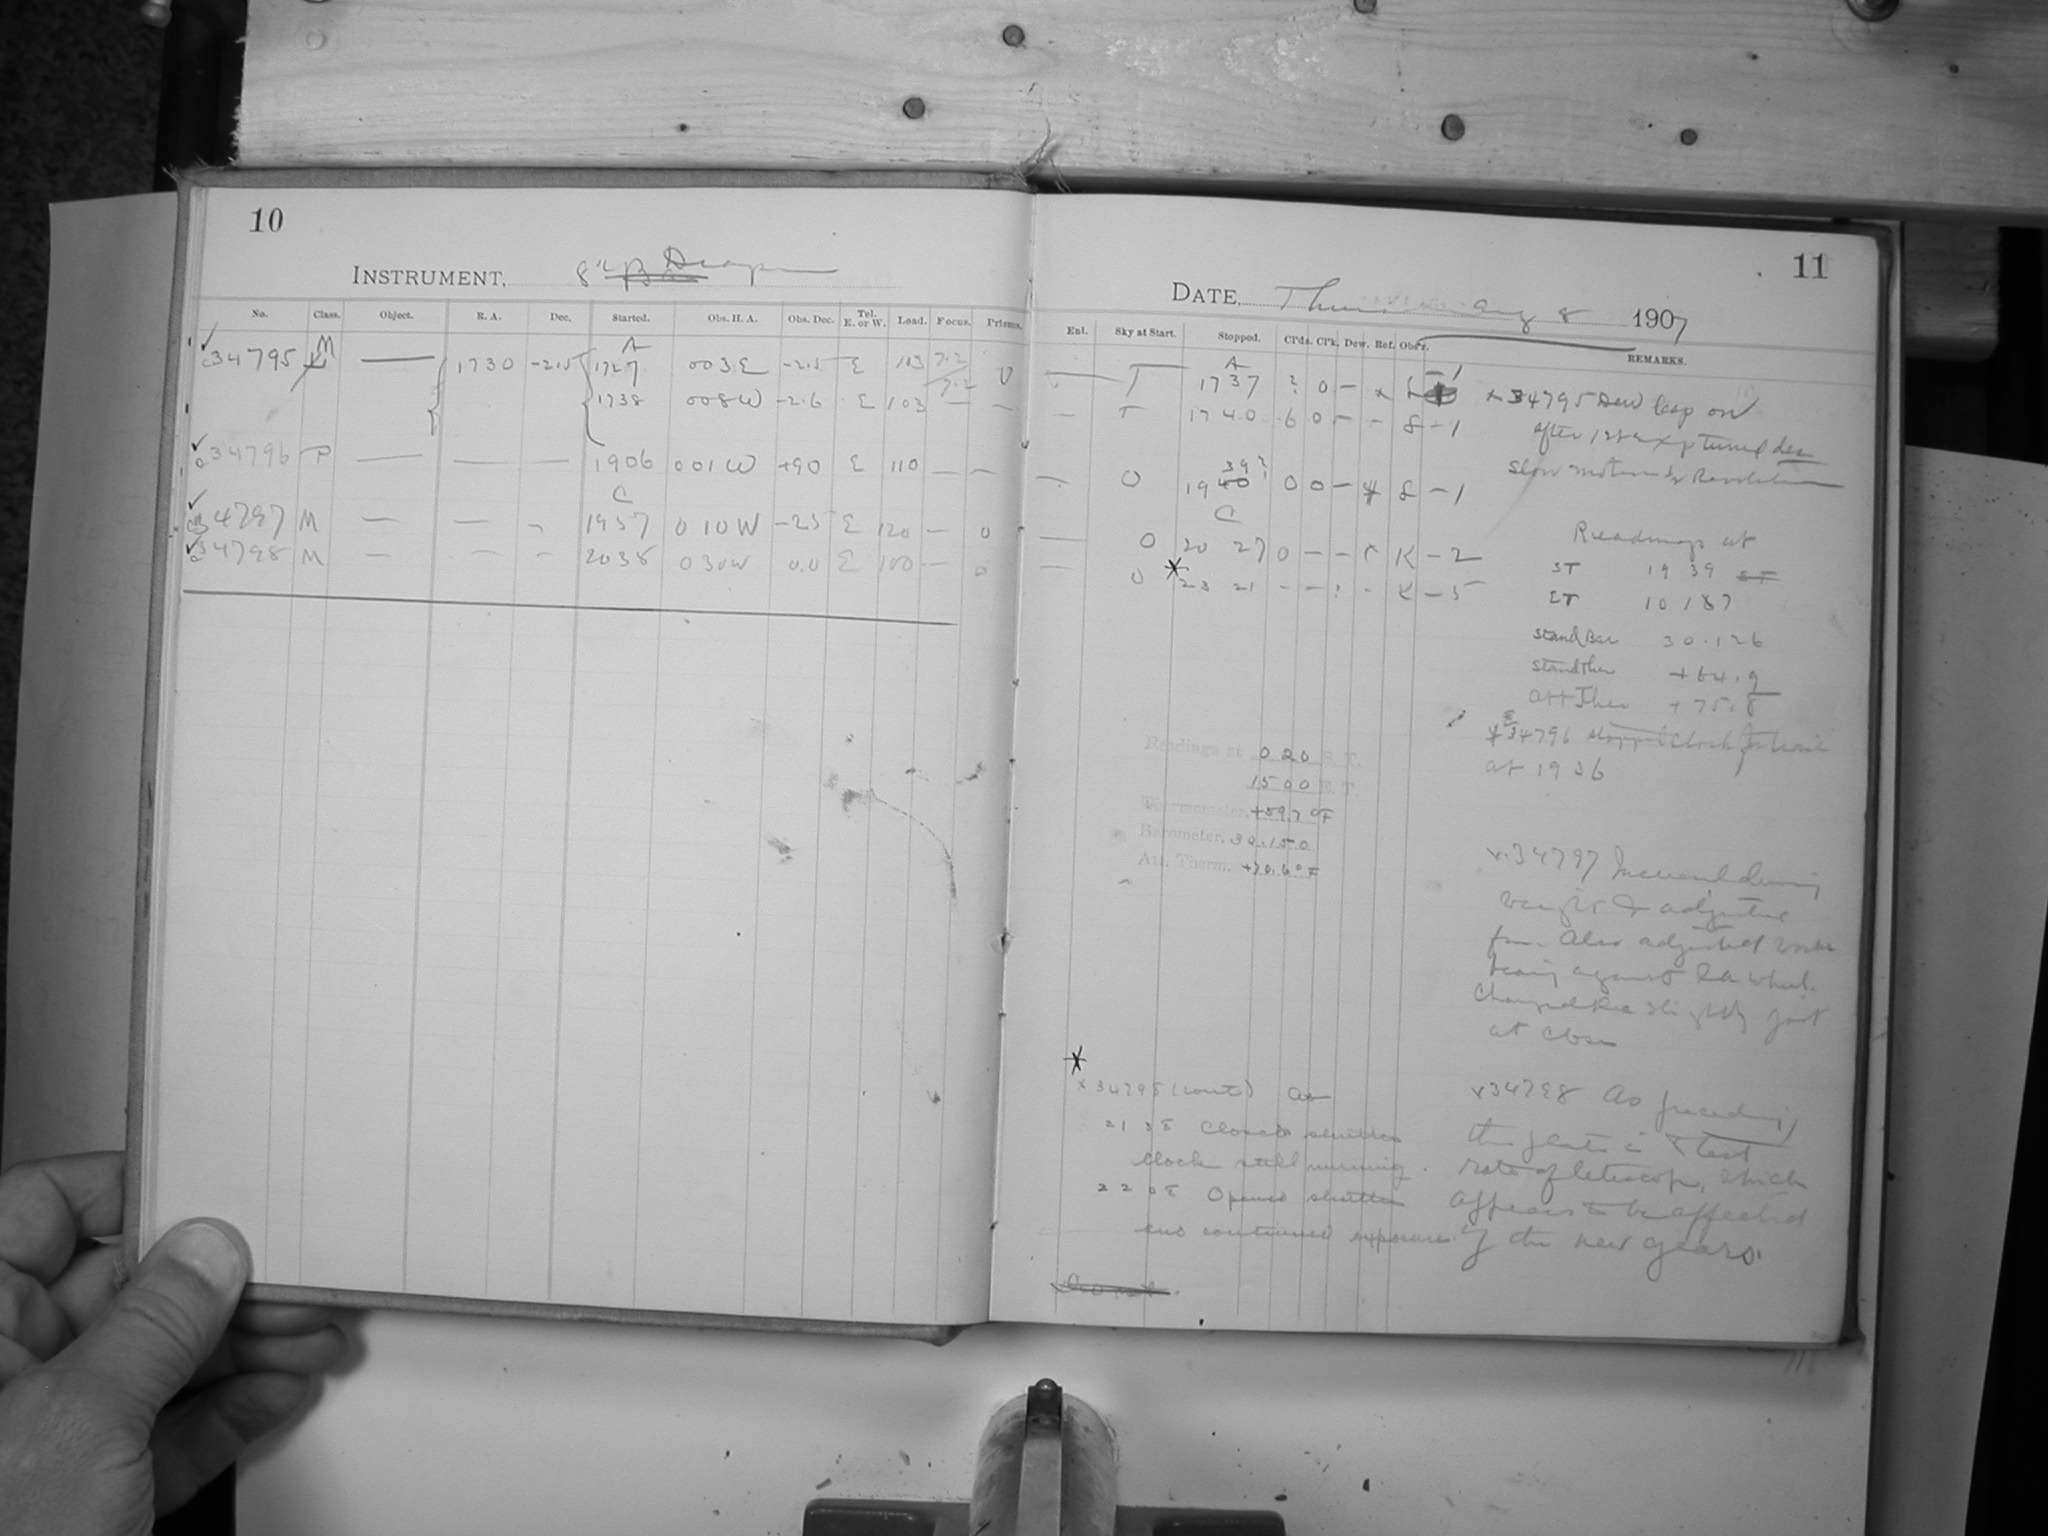 10
INSTRUMENT, 8" Draper
No. Class. Object. R. A. Dec. Started. Obs. H. A. Obs. Dec. Tel. E. or W. Load. Focus. Prisms.
A
34795 M — 1730 -25 1727 003E -25 E 113 7.2 0
1738 008W -26 E 103 — —
34796 P — — — 1906 001W +90 E 110 — —
C
34797 M — — - 1957 010W -25 E 120 — 0
34798 M — — - 2038 030W 0.0 E 100 — 0
11
DATE, Thurs Aug 8 1907
Enl. Sky at Start. Stopped. Cl'ds. Cl'k. Dew. Ref. Obs'r. REMARKS.
A
— T 1737 ? 0 — x
— T 1740 6 0 - - 8 - 1
39?
— 0 19 40 0 0 - 8 - 1
C
— 0 20 27 0 - - K - 2
— 0 * 23 21 - - : - K - 5
x 34795 Dew cap on
after 1st exp turned dec
slow motion Revolution
Readings at
ST 19 39 ST
ET 10 187
Stand Bar 30.126
Stand Ther +64.9
Att Ther +75.8
34796 stopped clock
at 1936
Readings at 0 20 S. T.
15 00 E. T.
Thermometer, +59.7 °F
Barometer, 30.150
Att. Therm. +70.6 °F
34797 Increased driving
weight & adjusted
fan. Also adjusted worm
against RA wheel.
Changed slightly just
at close
*
x 34798 (cont)
21 38 Closed shutter
clock still running.
22 08 Opened shutter
and continued exposure.
34798 As preceding,
this plate is test
rate of telescope, which
appears to be affected
by the new gears.